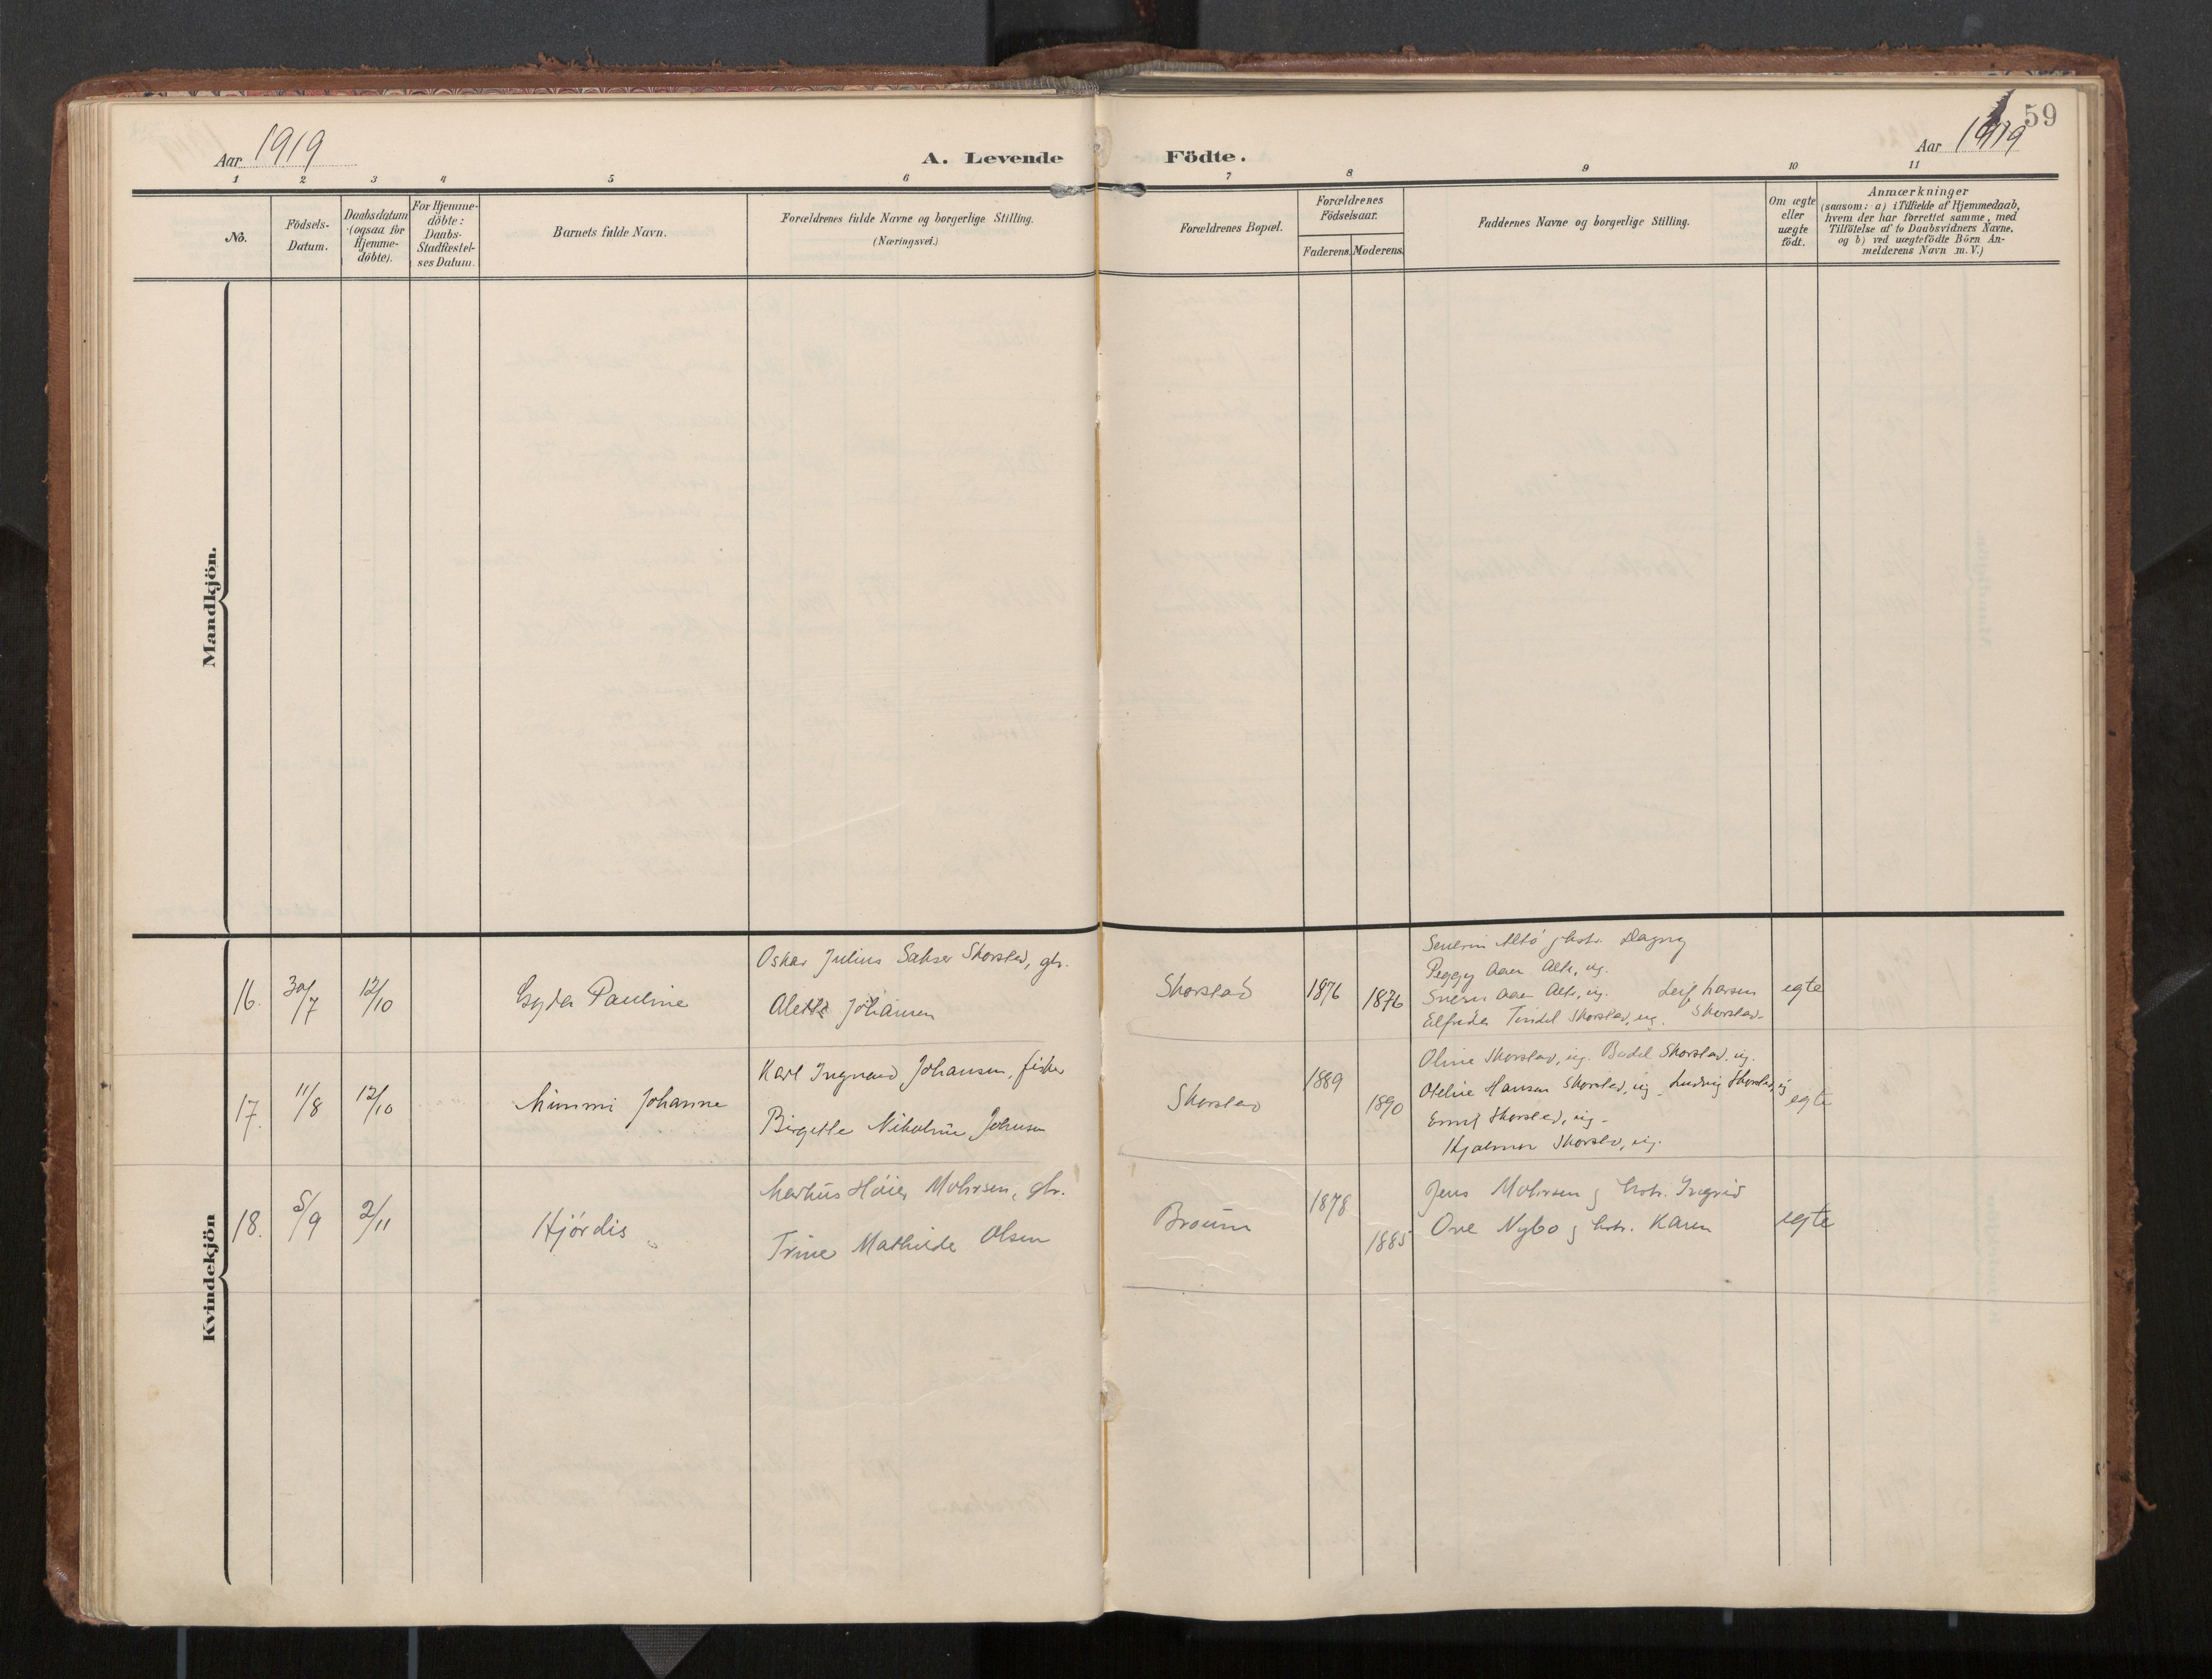 59
Aar 1919
A. Levende Födte.
Aar 1919
1 2 3 4 5 6 7 8 9 10 11
No.
Födsels-
Datum.
Daabsdatum
(ogsaa for
Hjemme-
döbte).
For Hjemme-
döbte:
Daabs-
Stadfæstel-
ses Datum.
Barnets fulde Navn.
Forældrenes fulde Navne og borgerlige Stilling.
(Næringsvei.)
Forældrenes Bopæl.
Forældrenes
Födselsaar.
Faderens. Moderens.
Faddernes Navne og borgerlige Stilling.
Om ægte
eller
uægte
födt.
Anmærkninger
(saasom: a) i Tilfælde af Hjemmedaab,
hvem der har forrettet samme, med
Tilföielse af to Daabsvidners Navne,
og b) ved uægtefödte Börn An-
melderens Navn m. V.)
Mandkjön.
Kvindekjön
16. 30/7 12/10 Gyda Pauline
Oskar Julius Sakser Skorstad, gbr.
Alette Johansen
Skorstad 1876 1876
Severin Altö g hstr. Dagny
Peggy Aaen Alte, ug.
Sverre Aaen Alte, ug. Leif Larsen
Elfrida Tindel Skorstad, ug. Skorstad.
egte
17. 11/8 12/10 Mimmi Johanne
Karl Ingvard Johansen, fisker
Birgitte Nikoline Johnsen
Skorstad 1889 1890
Oline Skorstad, ug. Bodil Skorstad, ug.
Oteline Hansen Skorstad, ug. Ludvig Skorstad, ug
Ernst Skorstad, ug.
Hjalmar Skorstad, ug.
egte
18. 5/9 2/11 Hjördis
Markus Höier Mohrsen, gbr.
Trine Mathilde Olsen
Broum 1878 1885
Jens Mohrsen g hstr. Ingrid
Ove Nybo g hstr. Karen
egte